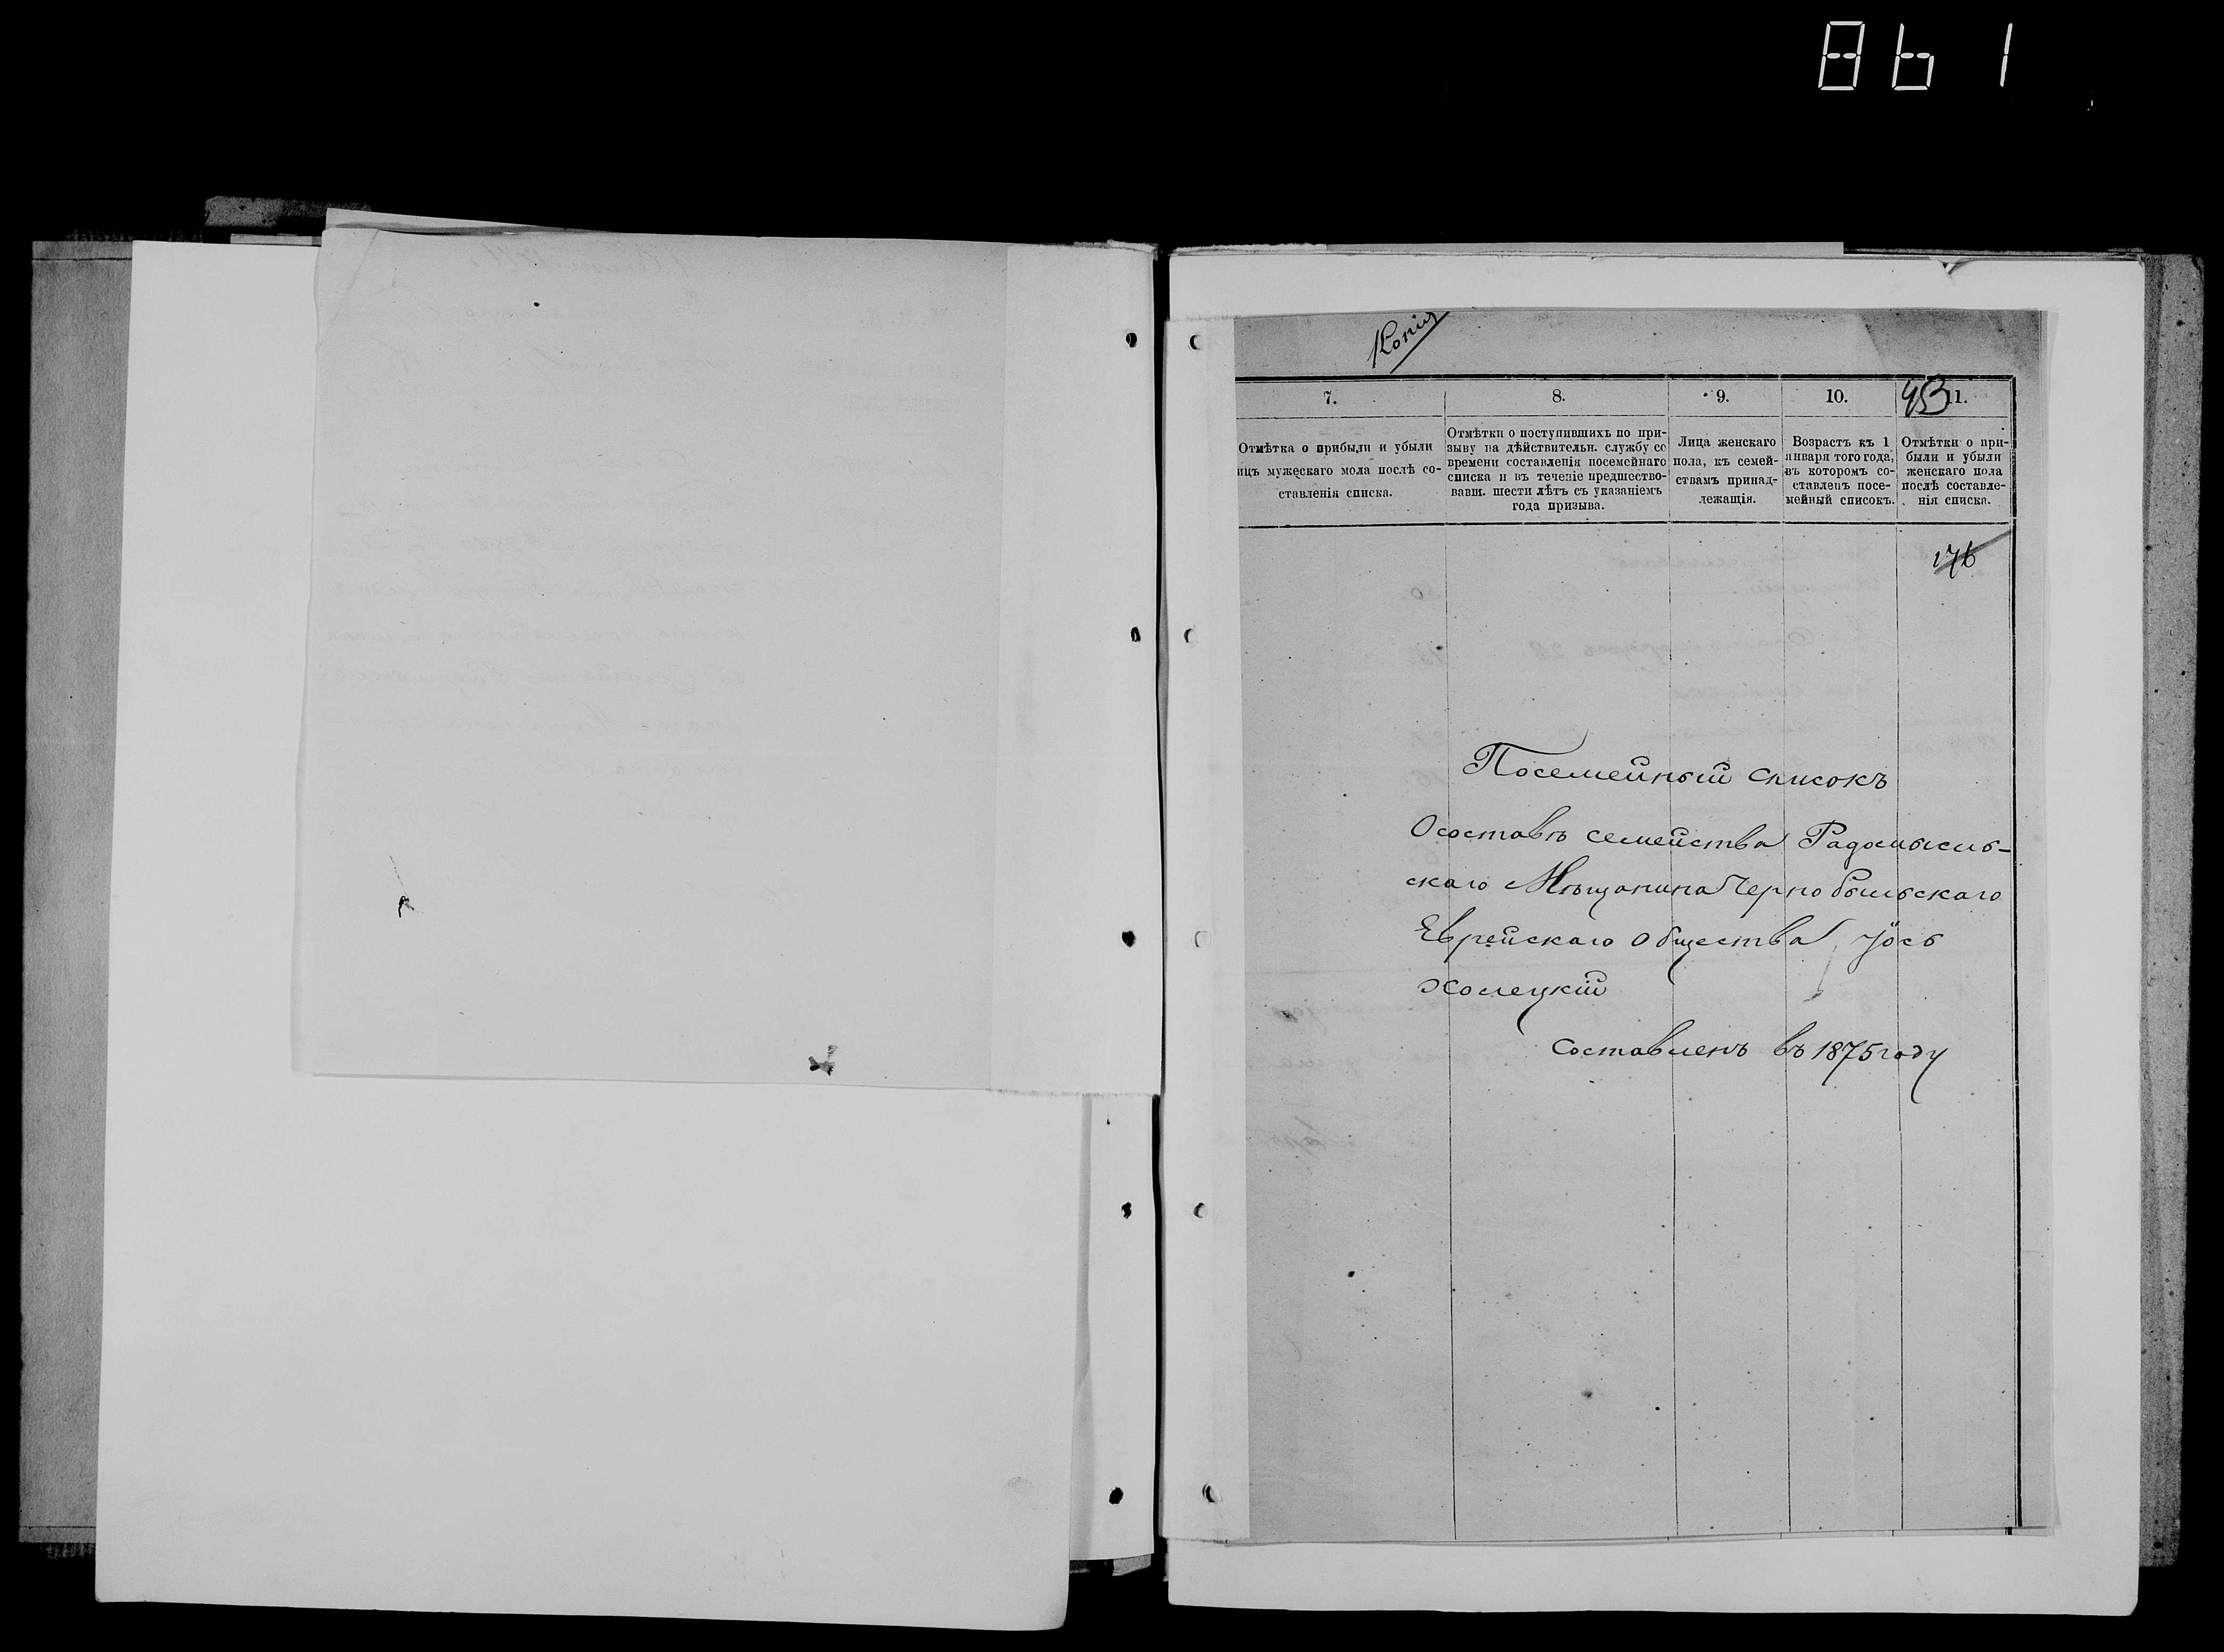 861
Копія
7.
8.
9.
10.
11.
43
Отмѣтка о прибыли и убыли
ицъ мужескаго мола послѣ со-
ставленія списка.
Отмѣтки о поступившихъ по при-
зыву на дѣйствительн. службу со
времени составленія посемейнаго
списка и въ теченіе предшество-
вавш. шести лѣтъ съ указаніемъ
года призыва.
Лица женскаго
пола, къ семей-
ствамъ принад-
лежащія.
Возрастъ къ 1
января того года,
въ которомъ со-
ставленъ посе-
мейный списокъ.
Отмѣтки о при-
были и убыли
женскаго пола
послѣ составле-
нія списка.
176
Посемейный списокъ
О составѣ семейства Радомысль-
скаго Мѣщанина Чернобыльскаго
Еврейскаго Общества Iось
Холецкій
Составленъ въ 1875 году